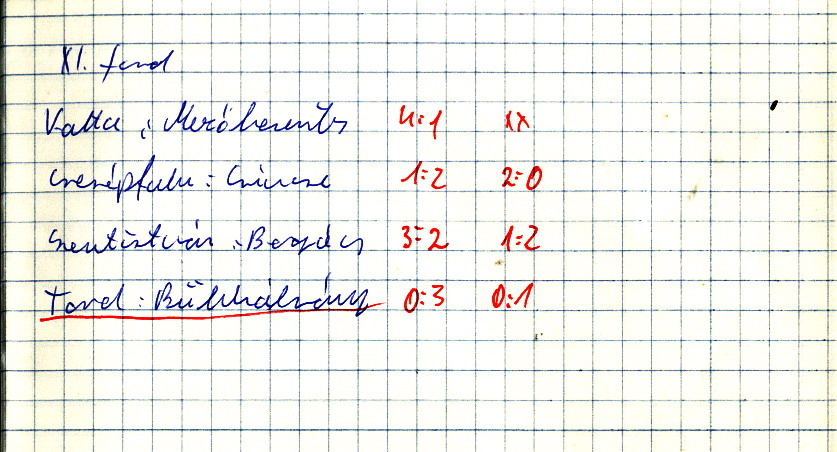 XI. ford
Vatta : Mezőkeresztes 4:1 xx
Cserépfalu : Csincse 1:2 2:0
Szentistván : Bogács 3:2 1:2
Tard : Bükkábrány 0:3 0:1